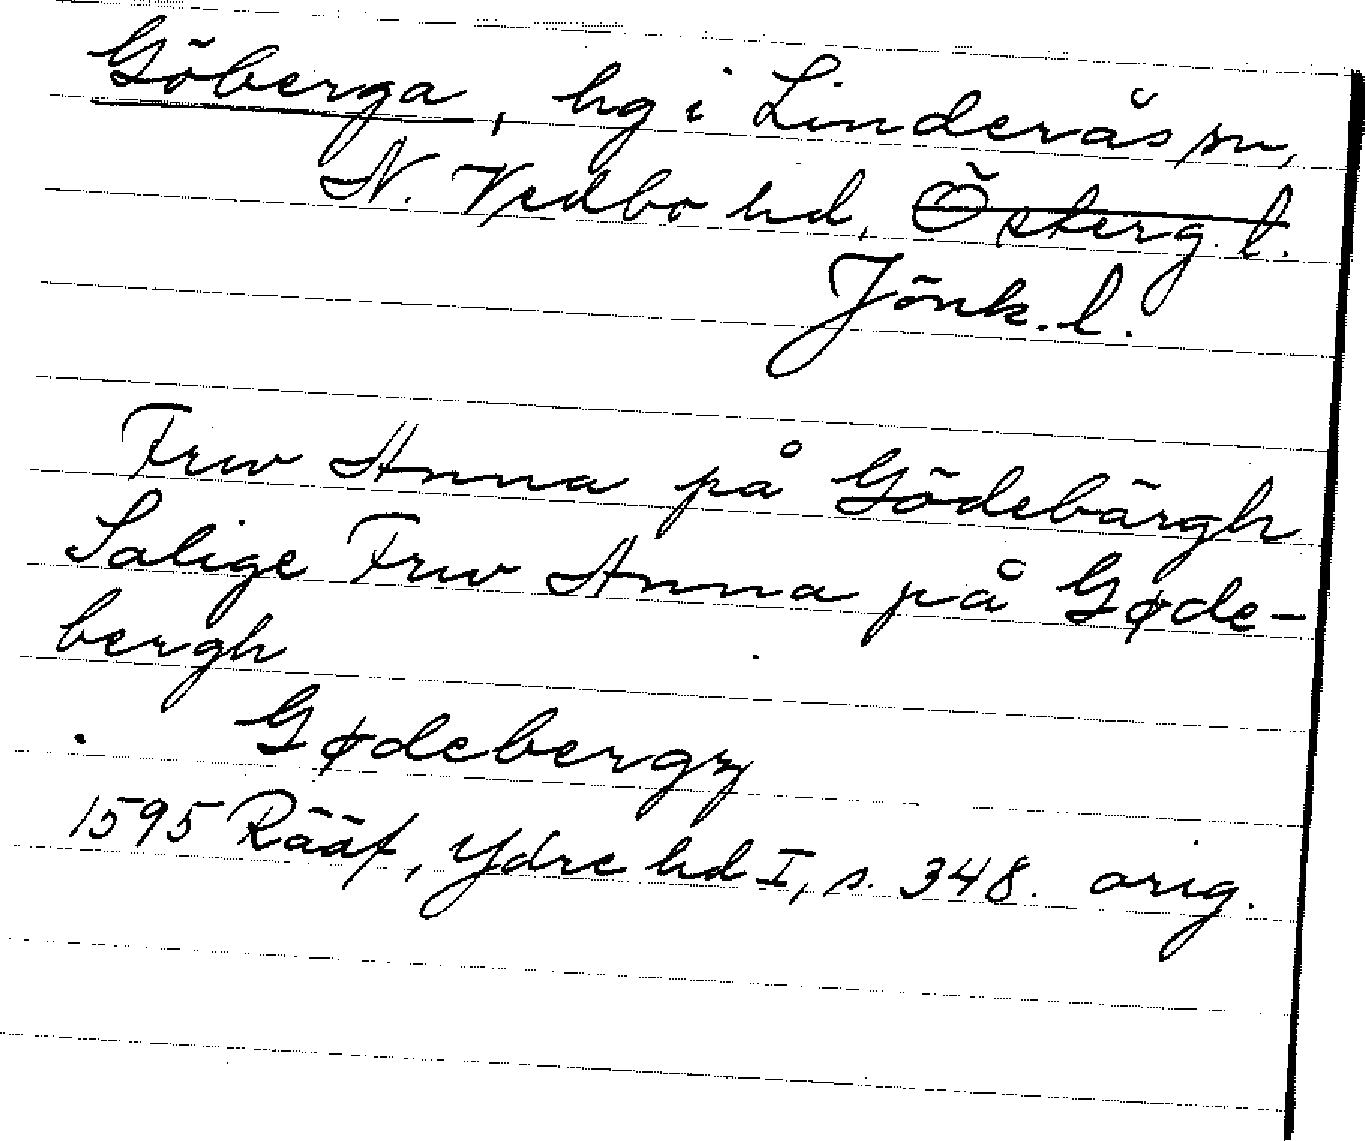 Göberga, hg i Linderås sn,
N. Vedbo hd, Österg. l.
Jönk. l.
Frw Anna på Gödebärgh
Salige Frw Anna på Gøde-
bergh
Gødebergz
1595 Rääf, Ydre hd I, s. 348. orig.